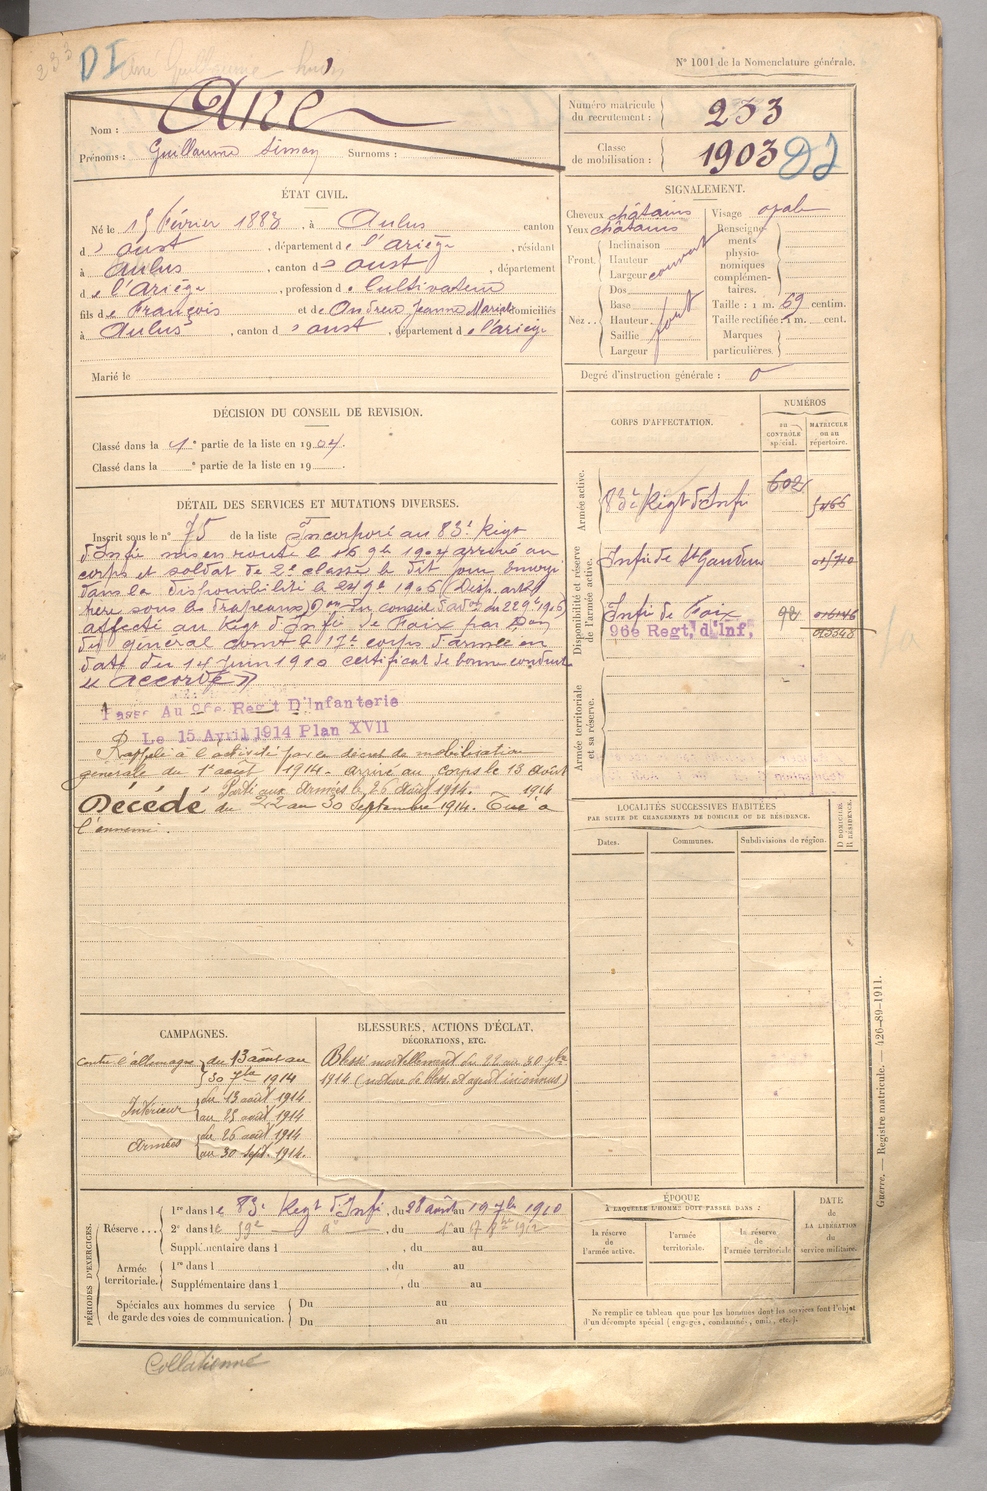 233 DI
N° 1001 de la Nomenclature générale.
Nom : Ané
Prénoms : Guillaume Simon Surnoms :
Numéro matricule du recrutement : 233
Classe de mobilisation : 1903 DI
ÉTAT CIVIL.
Né le 15 Février 1883, à Aulus canton
d' oust, département de l'ariège, résidant
à Aulus, canton d' oust, département
de l'Ariège, profession de Cultivateur
fils de François et de Andreu Jeanne Marie domiciliés
à Aulus, canton d' oust, département de l'ariège
Marié le
SIGNALEMENT.
Cheveux châtains
Yeux châtains
Front. Inclinaison
Hauteur
Largeur couvert
Nez.. Dos
Base
Hauteur. fort
Saillie
Largeur
Visage ovale
Renseignements physionomiques complémentaires.
Taille : 1 m. 69 centim.
Taille rectifiée : 1 m. cent.
Marques particulières.
Degré d'instruction générale : 0
DÉCISION DU CONSEIL DE REVISION.
Classé dans la 1e partie de la liste en 1904.
Classé dans la e partie de la liste en 19 .
DÉTAIL DES SERVICES ET MUTATIONS DIVERSES.
Inscrit sous le n° 75 de la liste Incorporé au 83e Regt
d'Infie mis en route le 16 9bre 1904 arrivé au
corps et soldat de 2e classe le dit jour Envoyé
dans la disponibilité le
affecté au Régt d'Infie de Foix par
du général comt le 17e corps d'armée en
date du 14 Juin 1910 certificat de bonne conduite
"accordé"
Passé Au 96e Regt D'Infanterie
Le 15 Avril 1914 Plan XVII
Rappelé à l'activité par le décret de mobilisation
générale du 1er août 1914. Arrivé au corps le 13 Août
1914
Parti aux Armées le 26 Août 1914.
Décédé du 22 au 30 Septembre 1914. Tué à
l'ennemi.
CORPS D'AFFECTATION.
NUMÉROS
au CONTRÔLE spécial.
MATRICULE ou au répertoire.
Armée active.
83e Regt d'Infie 602 5466
Disponibilité et réserve de l'armée active.
Infie de St Gaudens
Infie de Foix 98
96e Regt, d'Inf,
Armée territoriale et sa réserve.
LOCALITÉS SUCCESSIVES HABITÉES
PAR SUITE DE CHANGEMENTS DE DOMICILE OU DE RÉSIDENCE.
Dates. Communes. Subdivisions de région. D DOMICILE. R RÉSIDENCE.
CAMPAGNES.
Contre l'allemagne du 13 août au
30 7bre 1914
Intérieur du 13 août 1914
au 25 août 1914
Armées du 26 août 1914
au 30 sept. 1914.
BLESSURES, ACTIONS D'ÉCLAT.
DÉCORATIONS, ETC.
Blessé mortellement du 22 au 30 7bre
1914 (nature de bless. et agent inconnus)
PÉRIODES D'EXERCICES.
Réserve... 1re dans le 83e Regt d'Infie, du 28 août au 19 7bre 1910
2e dans le 59e d°, du 1er au 17 1912
Supplémentaire dans l , du au
Armée territoriale. 1re dans l , du au
Supplémentaire dans l , du au
Spéciales aux hommes du service de garde des voies de communication. Du au
Du au
ÉPOQUE
À LAQUELLE L'HOMME DOIT PASSER DANS :
la réserve de l'armée active.
l'armée territoriale.
la réserve de l'armée territoriale
DATE de LA LIBÉRATION du service militaire.
Ne remplir ce tableau que pour les hommes dont les services font l'objet
d'un décompte spécial (engagés, condamnés, omis, etc.).
Guerre. — Registre matricule. — 426-89-1911.
Collationné